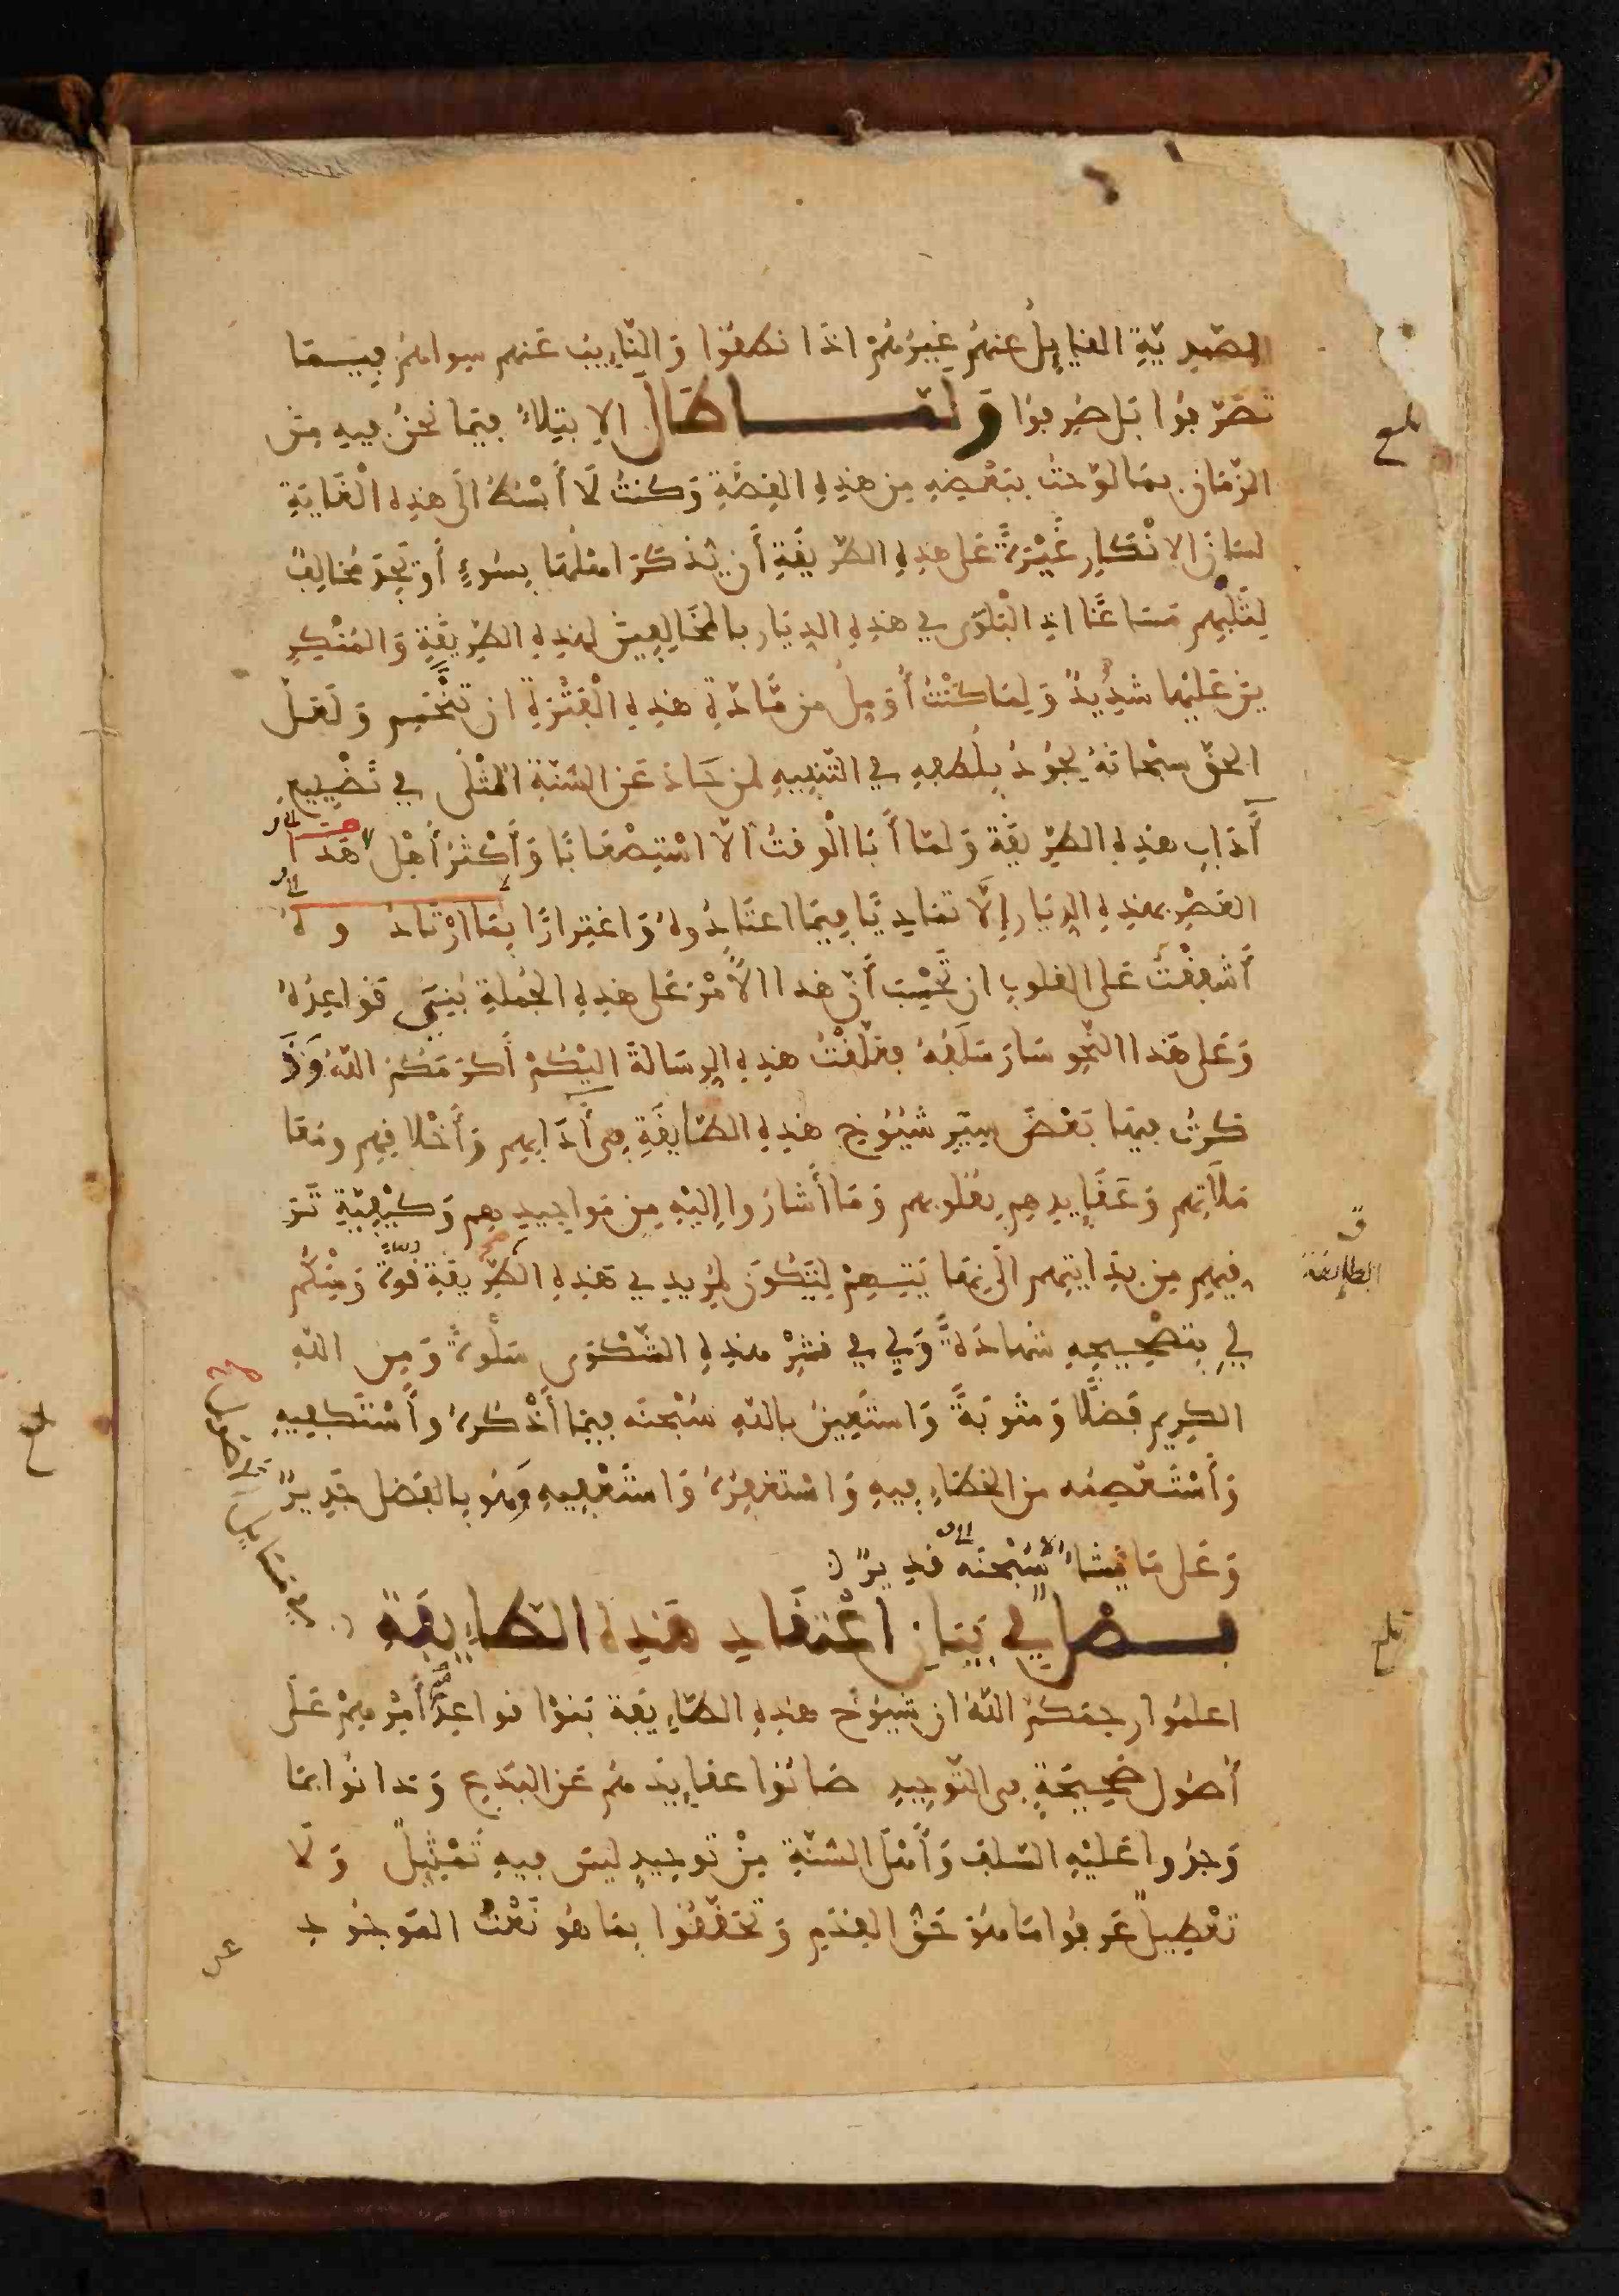 الصمدية القايل عنهم غيرهم اذا نطقوا والنايب عنهم سواهم فيما
تصرفوا بل صرفوا ولما طال الابتلاء فيما نحن فيه من
الزمان بما لوحت ببعضه من هذه القصة وكنت لا أبسط الى هذه الغاية
لسان الانكار غيرة على هذه الطريقة أن يذكر اهلها بسوء أو يجد مخالف
لثلبهم مساغا اذ البلوى في هذه الديار بالمخالفين لهذه الطريقة والمنكر
ين عليها شديد ولما كنت أومل من مادة هذه الفترة ان تنحسم ولعل
الحق سبحانه يجود بلطفه في التنبيه لمن حاد عن السنة المثلى في تضييع
أداب هذه الطريقة ولما أبا الوقت الا استصعابا وأكثر أهل هذا
العصر بهذه الديار إلا تماديا فيما اعتادوه واغترارا بما ارتادوه
أشفقت على القلوب ان تحسب أن هذا الأمر على هذه الجملة بني قواعده
وعلى هذا النحو سار سلفه فعلقت هذه الرسالة اليكم أكرمكم الله وذ
كرت فيها بعض سير شيوخ هذه الطايفة في أدابهم وأخلاقهم ومعا
ملاتهم وعقايدهم بقلوبهم وما أشاروا إليه من مواجيدهم وكيفية تر
قيهم من بدايتهم الى نهايتهم لتكون لمريدي هذه الطريقة قوة ومنكم
لي بتصحيحه شهادة ولي في نشر هذه الشكوى سلوة ومن الله
الكريم فضلا ومثوبة واستعين بالله سبحنه فيما أذكره وأستكفيه
وأستعصمه من الخطاء فيه واستغفره واستعفيه وهو بالفضل جدير
وعلى ما يشاء سبحنه قدير
فصل في بيان اعتقاد هذه الطايفة
اعلموا رحمكم الله ان شيوخ هذه الطايفة بنوا قواعد أمرهم على
أصول صحيحة في التوحيد صانوا عقايدهم عن البدع ودانوا بما
وجدوا عليه السلف وأهل السنة من توحيد ليس فيه تمثيل ولا
تعطيل عرفوا ما هو حق القدم وتحققوا بما هو نعت الموجود
الطايفة